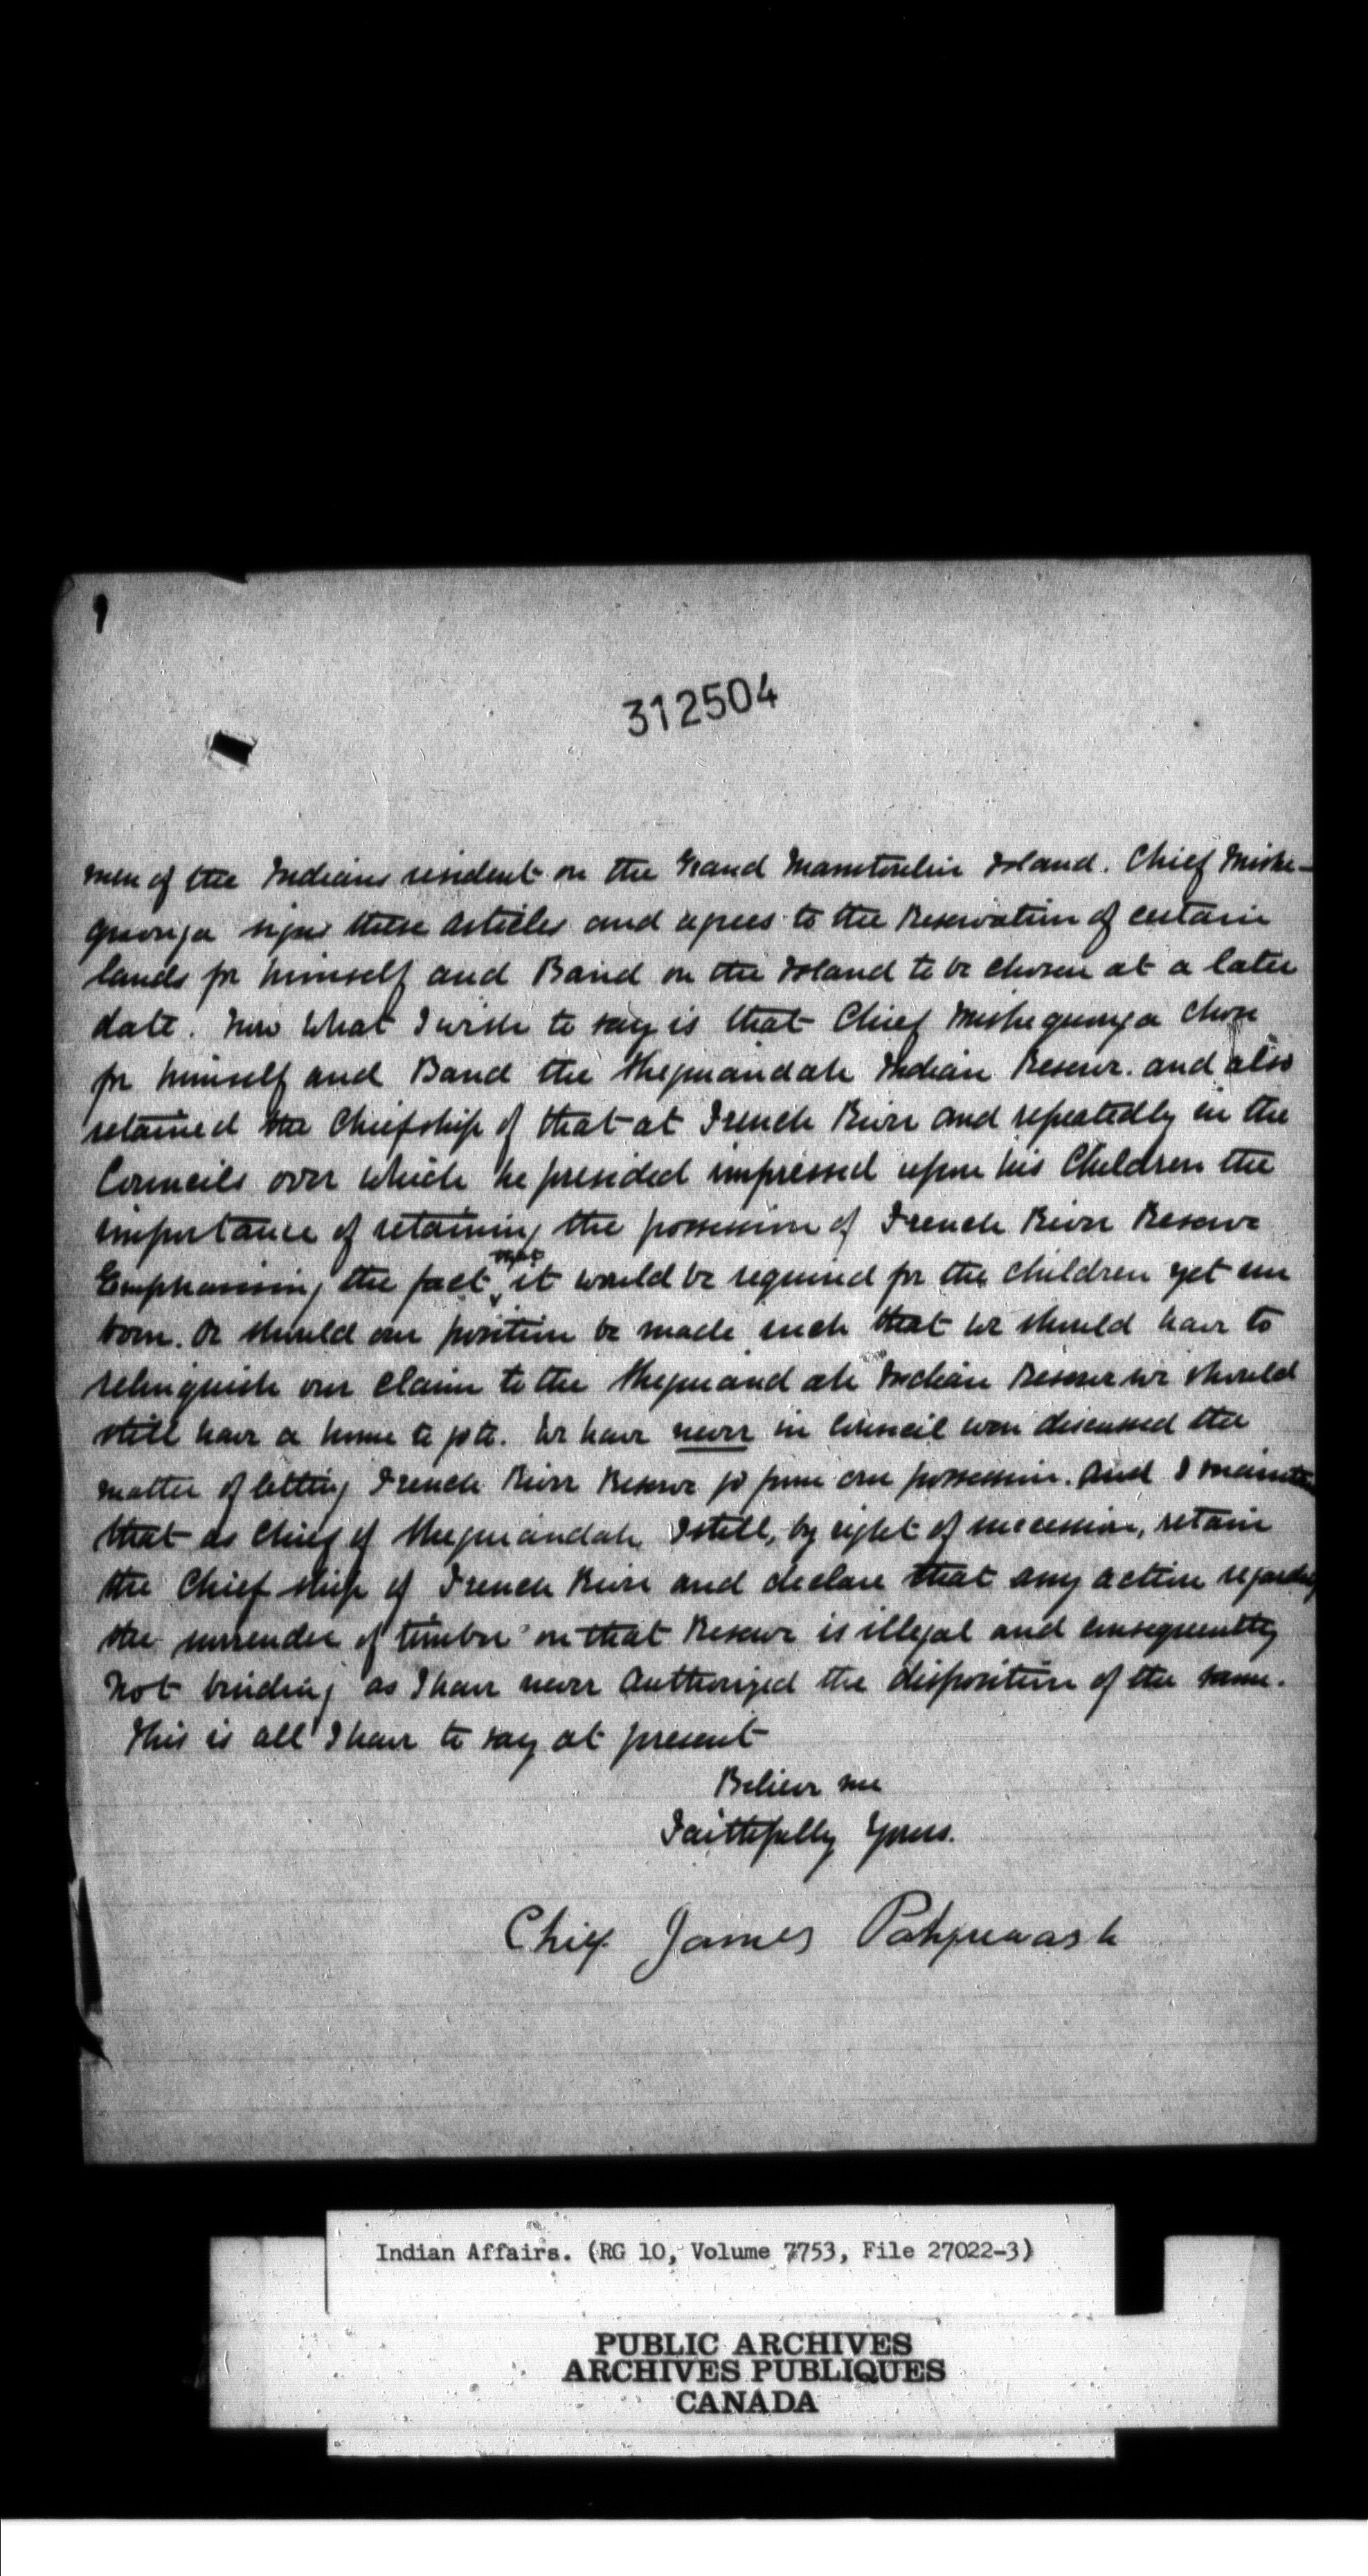 312504
men of the Indians resident on the Grand Manitoulin Island. Chief Mishe-
quonga signs these articles and agrees to the Reservation of certain
lands for himself and Band on the Island to be chosen at a later
date. Now what I wish to say is that Chief Mishequonga chose
for himself and Band the Sheguiandah Indian Reserve. and also
retained the Chiefship of that at French River and repeatedly in the
Councils over which he presided impressed upon his Children the
importance of retaining the possession of French River Reserve
Emphasising the fact that it would be required for the children yet un
born. Or should our position be made such that we should have to
relinquish our claim to the Sheguiandah Indian Reserve we should
still have a home to go to. We have never in Council even discussed the
matter of letting French River Reserve go from our possession. And I maintain
that as Chief of Sheguiandah I still, by right of succession, retain
the Chief ship of French River and declare that any action regarding
the surrender of timber on that Reserve is illegal and consequently
not binding as I have never authorized the disposition of the same.
This is all I have to say at present
Believe me
Faithfully Yours.
Chief James
Indian Affairs. (RG 10, Volume 7753, File 27022-3)
PUBLIC ARCHIVES
ARCHIVES PUBLIQUES
CANADA